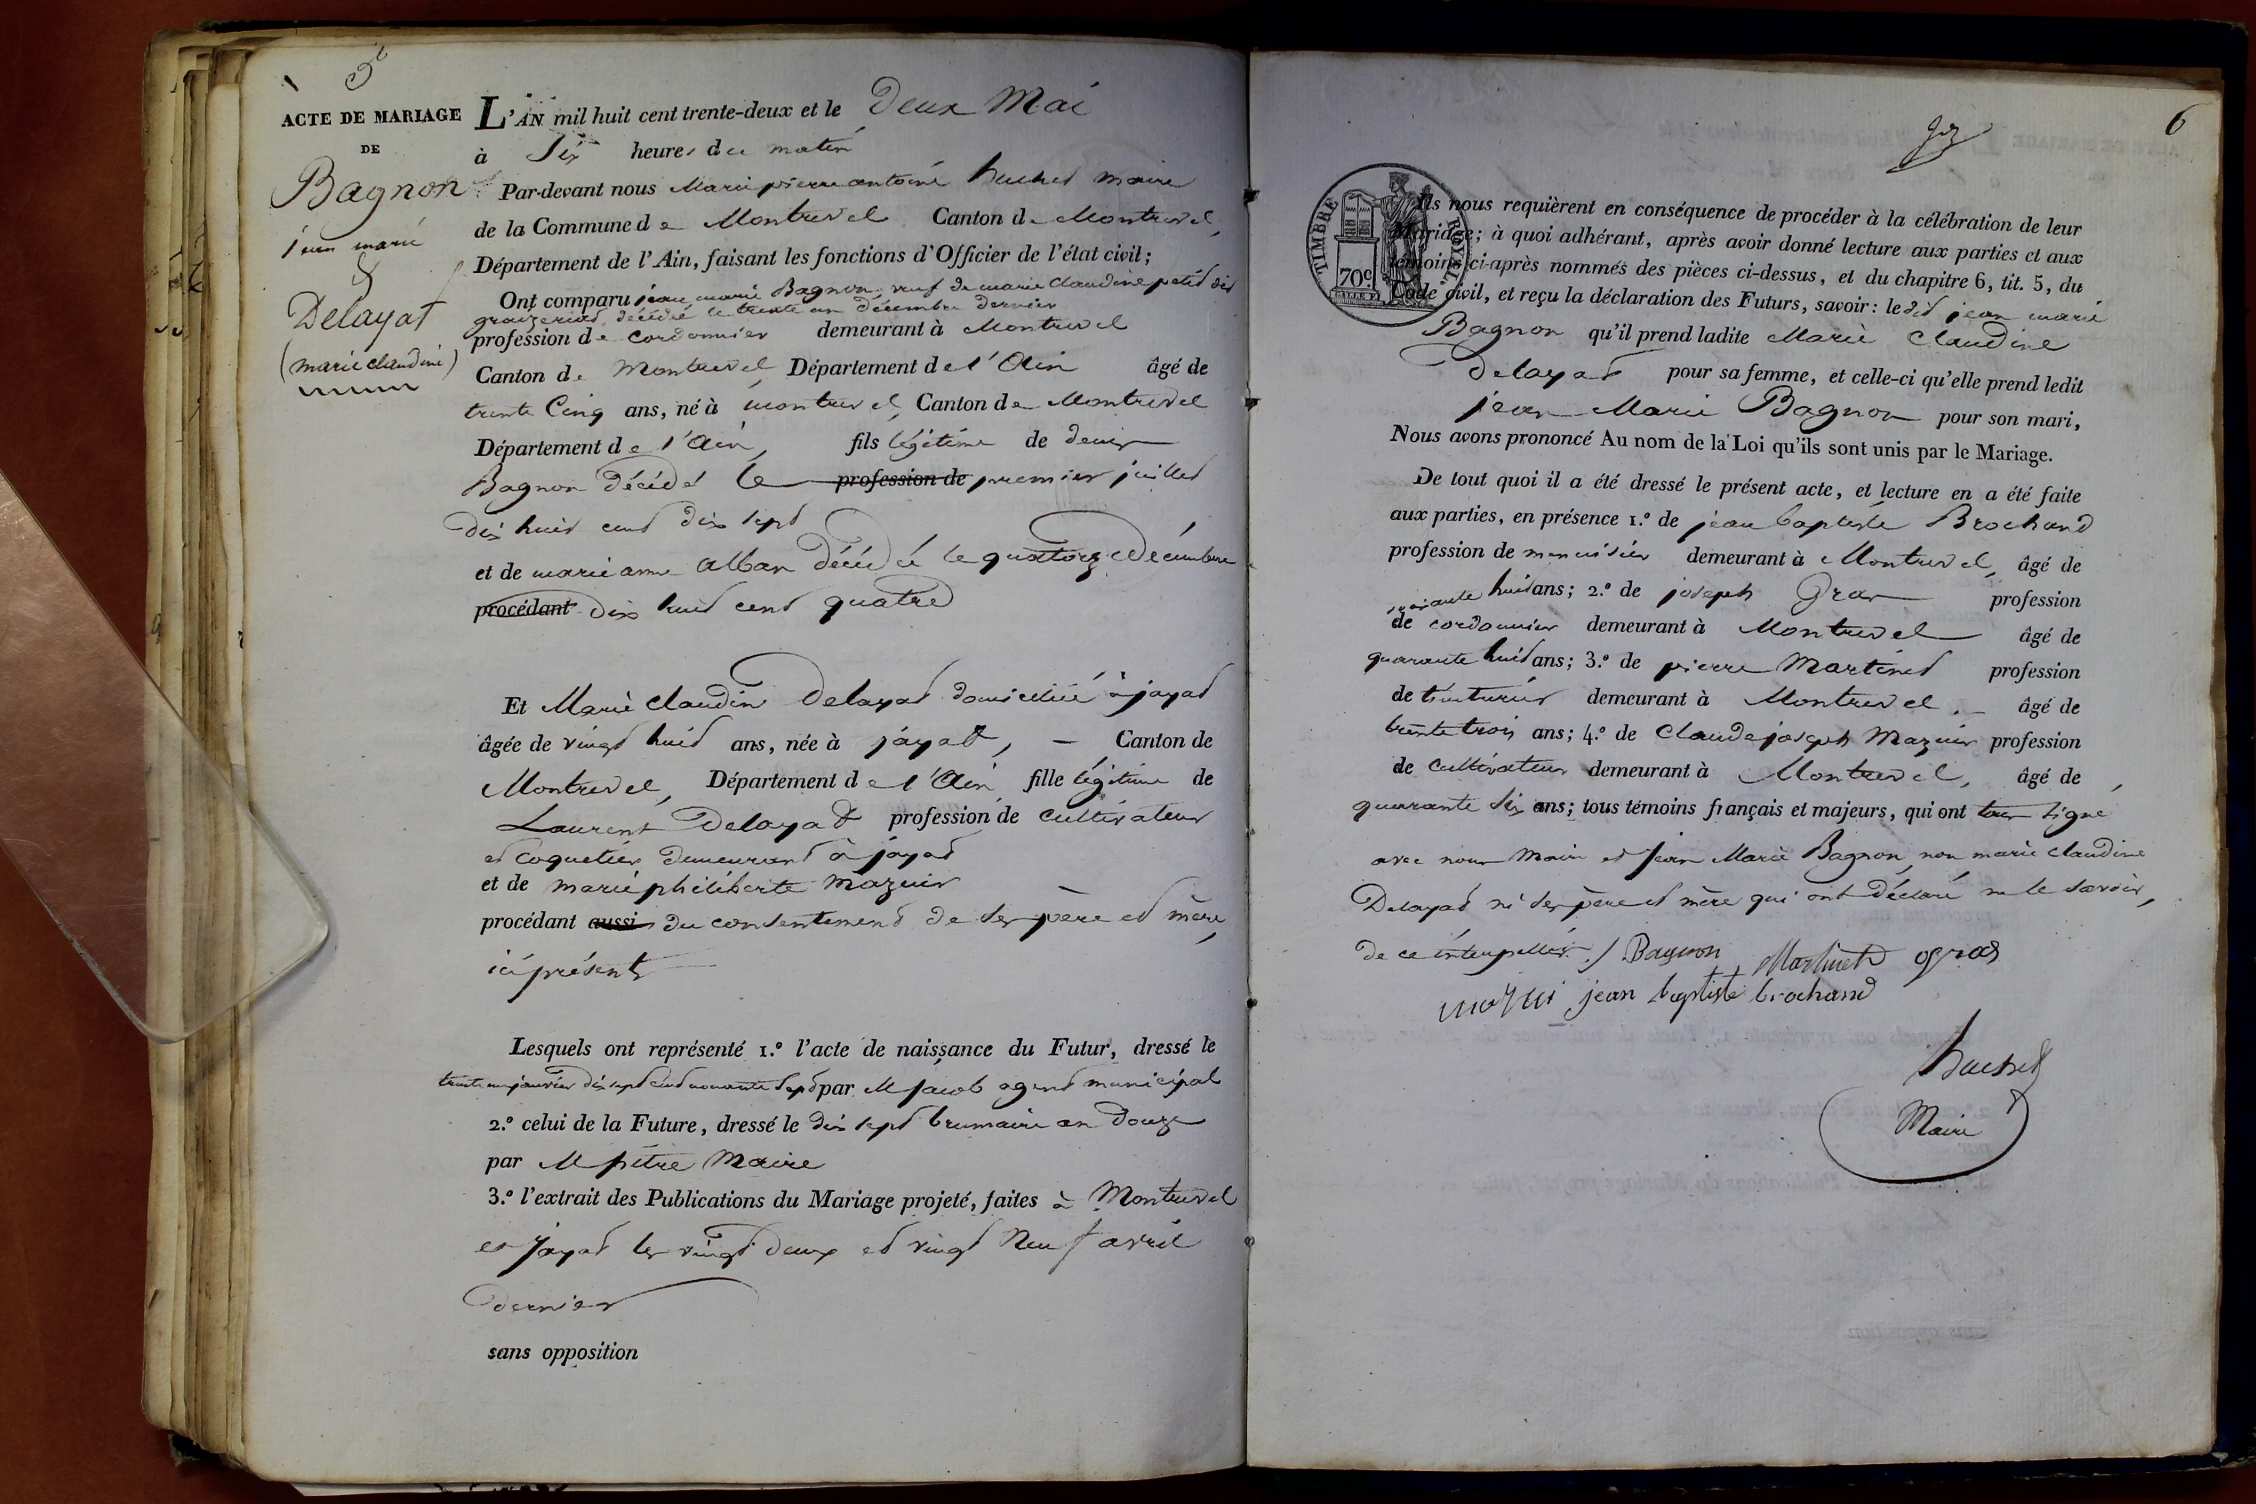 5e
ACTE DE MARIAGE
DE
Bagnon
jean marie
&
Delayat
(marie claudine)
L'AN mil huit cent trente-deux et le Deux Mai
à Six heures du matin
Par-devant nous Marie pierre antoine buchet maire
de la Commune de Montrevel Canton de Montrevel,
Département de l'Ain, faisant les fonctions d'Officier de l'état civil;
Ont comparu jean marie Bagnon, veuf de marie claudine petit dit
décédée le trente un décembre dernier
profession de cordonnier demeurant à Montrevel
Canton de Montrevel, Département de l'Ain âgé de
trente Cinq ans, né à montrevel, Canton de Montrevel
Département de l'Ain, fils légitime de denis
Bagnon décédé le profession de premier juillet
dix huit cent dix sept
et de marie anne alban décédée le quatorze Décembre
procédant dix huit cent quatre
Et Marie Claudine Delayat domiciliée à jayat
âgée de vingt huit ans, née à jayat, Canton de
Montrevel, Département de l'Ain, fille légitime de
Laurent Delayat profession de cultivateur
et coquetier demeurant à jayat
et de marie philiberte mazuir
procédant aussi du consentement de ses père et mère,
ici présents
Lesquels ont représenté 1.º l'acte de naissance du Futur, dressé le
trente un janvier dix sept cent nonante sept par M jacob agent municipal
2.º celui de la Future, dressé le dix sept brumaire an douze
par M pitre Maire
3.º l'extrait des Publications du Mariage projeté, faites à Montrevel
et jayat les vingt deux et vingt Neuf avril
dernier
sans opposition
6
TIMBRE ROYAL
70c
Ils nous requièrent en conséquence de procéder à la célébration de leur
Mariage; à quoi adhérant, après avoir donné lecture aux parties et aux
témoins ci-après nommés des pièces ci-dessus, et du chapitre 6, tit. 5, du
Code civil, et reçu la déclaration des Futurs, savoir: ledit jean marie
Bagnon qu'il prend ladite Marie Claudine
Delayat pour sa femme, et celle-ci qu'elle prend ledit
jean Marie Bagnon pour son mari,
Nous avons prononcé Au nom de la Loi qu'ils sont unis par le Mariage.
De tout quoi il a été dressé le présent acte, et lecture en a été faite
aux parties, en présence 1.º de jean baptiste Brochand
profession de menuisier demeurant à Montrevel, âgé de
soixante huit ans; 2.º de joseph Gras profession
de cordonnier demeurant à Montrevel âgé de
quarante huit ans; 3.º de pierre Martinet profession
de teinturier demeurant à Montrevel. âgé de
trente trois ans; 4.º de Claude joseph Mazuir profession
de Cultivateur demeurant à Montrevel, âgé de
quarante six ans; tous témoins français et majeurs, qui ont tous signé,
avec nous Maire et Jean Marie Bagnon, non marie claudine
Delayat ni ses père et mère qui ont déclaré ne le savoir,
de ce interpellés ./. Bagnon Martinet gras
mazui jean baptiste brochand
buchet
Maire